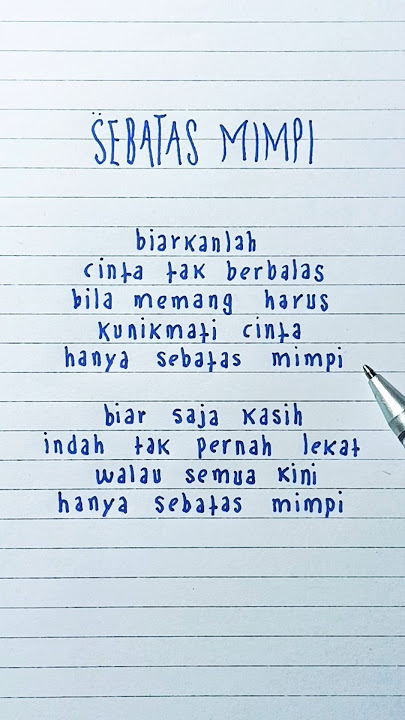 SEBATAS MIMPI
biarkanlah
cinta tak berbalas
bila memang harus
kunikmati cinta
hanya sebatas mimpi
biar saja kasih
indah tak pernah lekat
walau semua kini
hanya sebatas mimpi